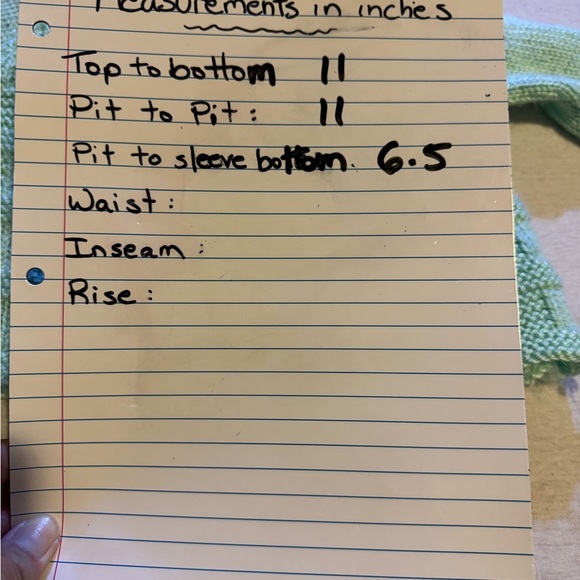 Measurements in inches
Top to bottom 11
Pit to Pit: 11
Pit to sleeve bottom. 6.5
Waist:
Inseam:
Rise: